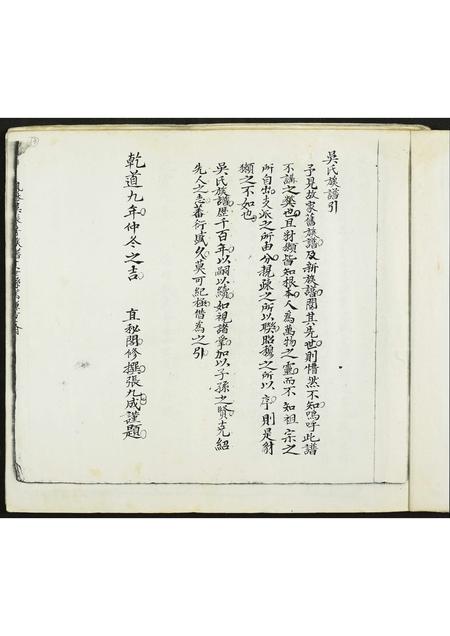 吳氏族譜引
予見故家舊族譜及新族譜閱其先世則懵然不知嗚呼此譜
不講之獘也且豺獺皆知根本人為萬物之靈而不知祖宗之
所自出支派之所由分親疎之所以聯昭穆之所以序則是豺
獺之不如也
吳氏族譜歷千百年以嗣以續如視諸掌加以子孫之賢克紹
先人之志蕃衍盛久莫可紀極借為之引
乾道九年仲冬之吉 直秘閣修撰張九成謹題